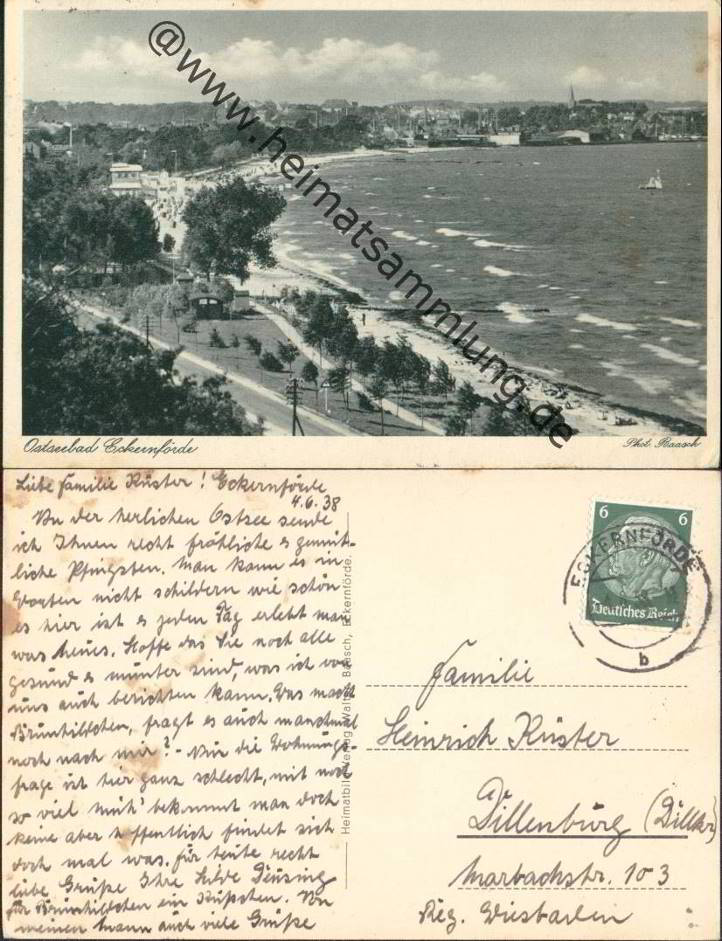 @www.heimatsammlung.de
Ostseebad Eckernförde
Phot. Baasch
Liebe Familie Küster! Eckernförde
4.6.38
An der herlichen Ostsee sende
ich Ihnen recht fröhliche & gemüt-
liche Pfingsten. Man kann es in
Worten nicht schildern wie schön
es hier ist & jeden Tag erlebt man
was neues. Hoffe das Sie noch alle
gesund & munter sind, was ich von
uns auch berichten kann. Was macht
Brünhildchen, fragt es auch manchmal
noch nach mir? - Nur die Wohnungs-
frage ist hier ganz schlecht, mit noch
so viel Müh' bekommt man doch
keine aber hoffentlich findet sich
doch mal was. Für heute recht
liebe Grüße Ihre Hilde Deusing
für Brünhildchen ein Küßchen. Von
meinem Mann auch viele Grüße
Heimatbild-Verlag Walter Baasch, Eckernförde.
6 6
Deutsches Reich
ECKERNFÖRDE
b
Familie
Heinrich Küster
Dillenburg (Dillkr)
Marbachstr. 103
Reg. Wiesbaden